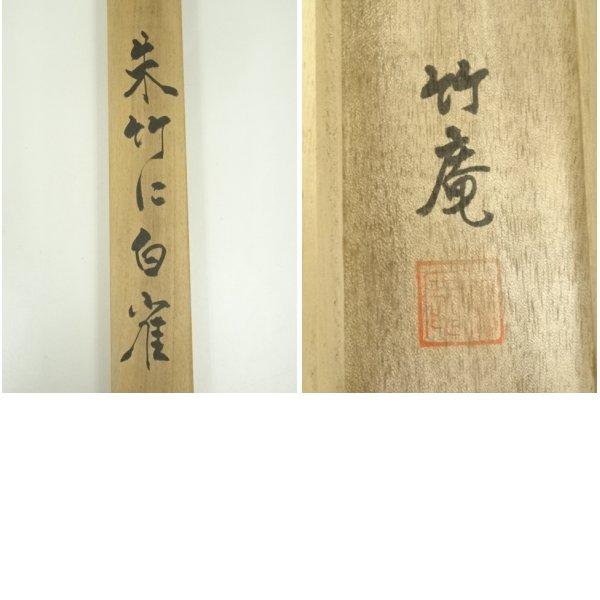 朱竹に白雀
竹庵